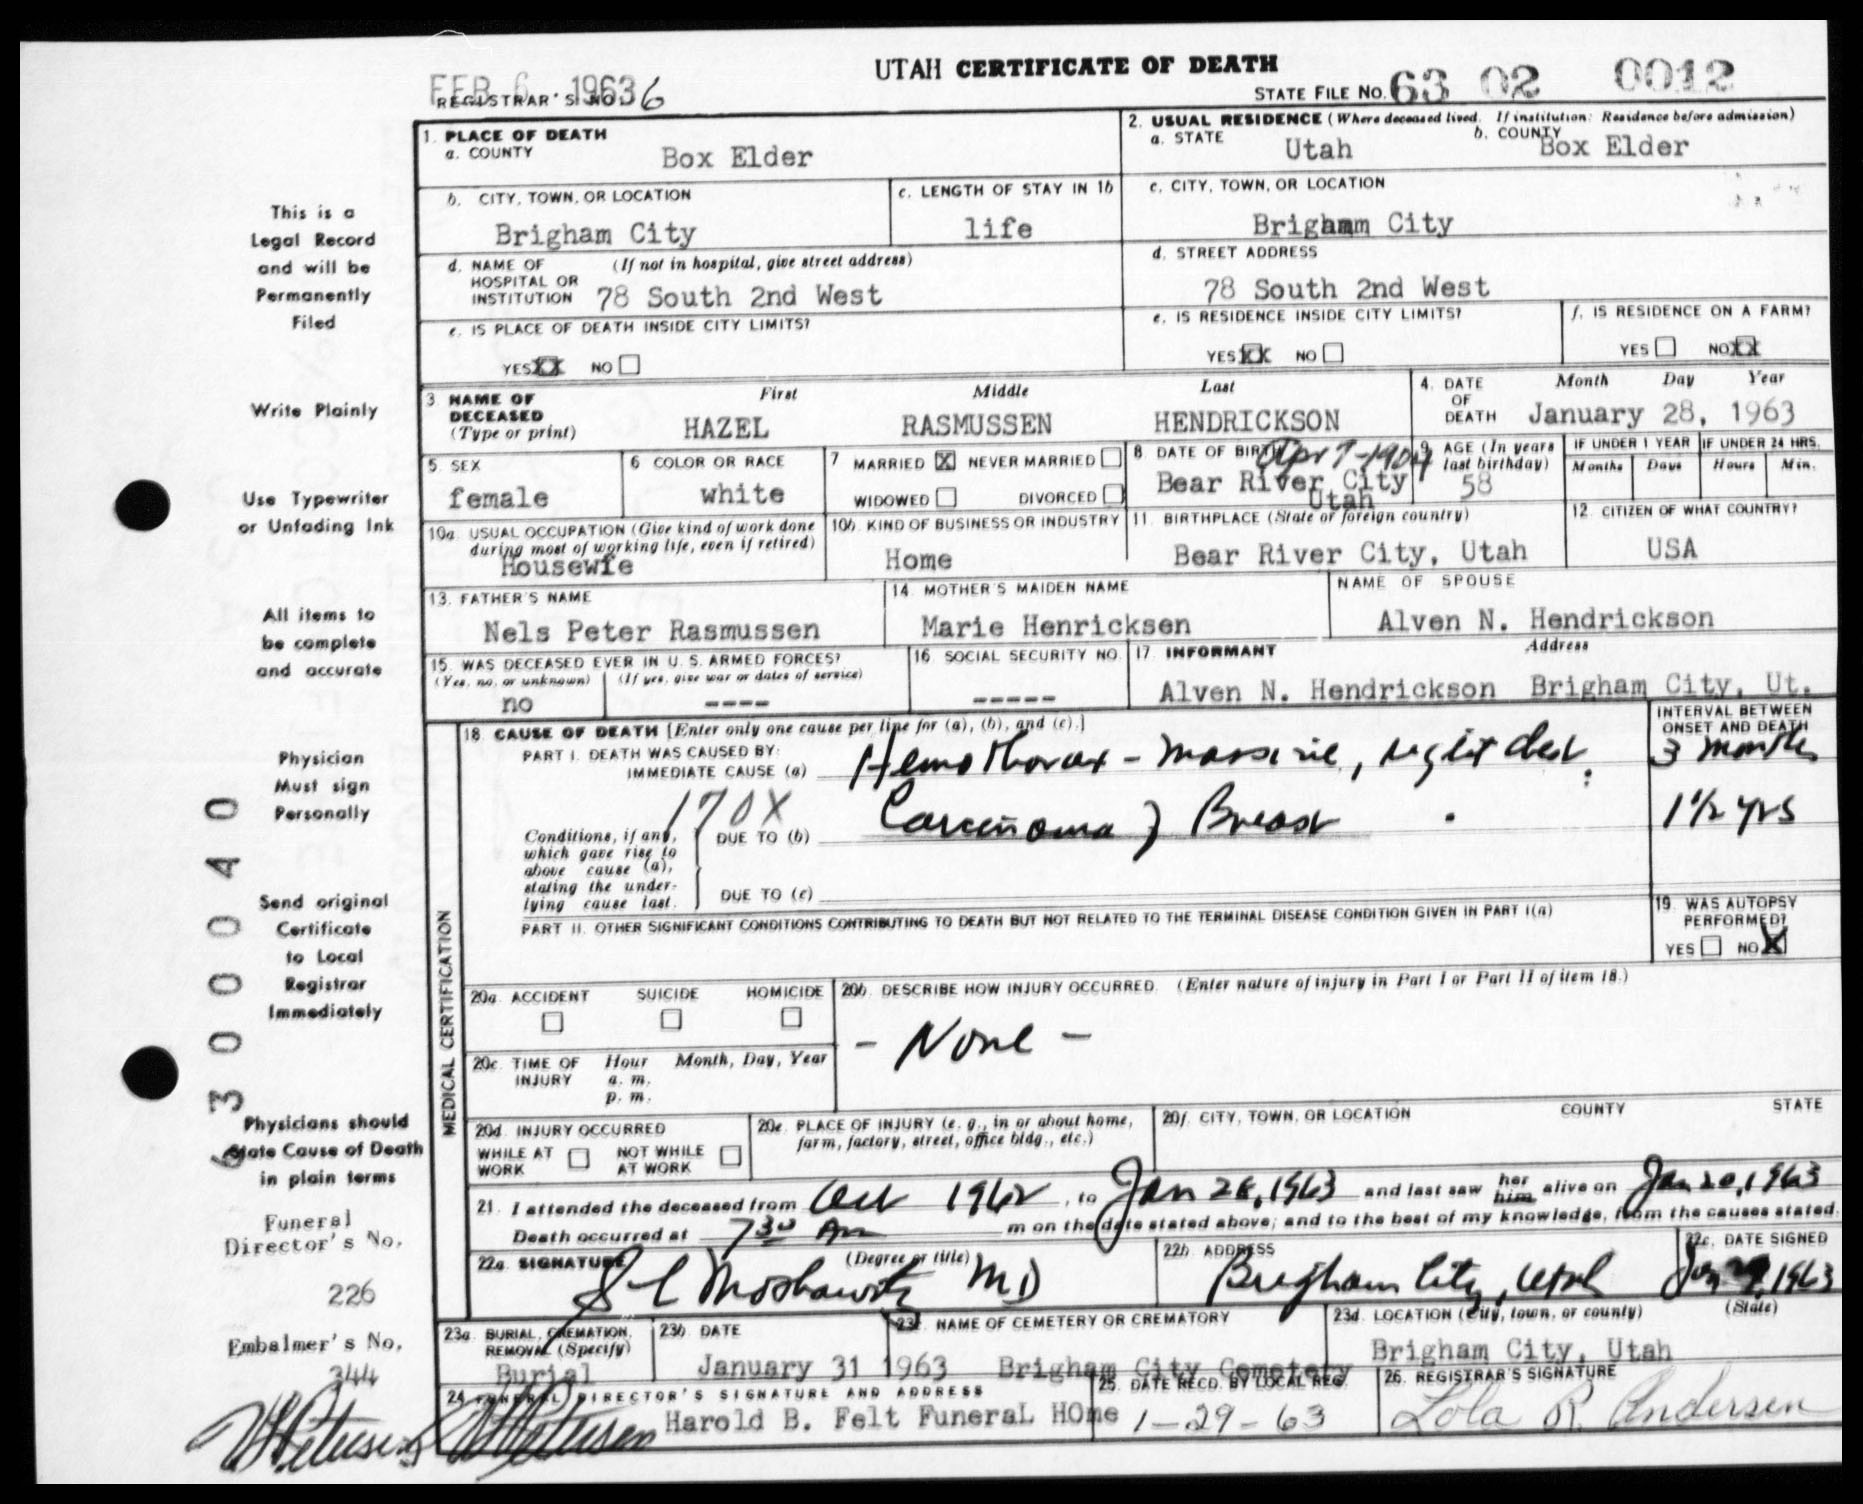 UTAH CERTIFICATE OF DEATH
FEB 6 1963
REGISTRAR'S NO. 6
STATE FILE NO. 63 02 0012
1. PLACE OF DEATH
a. COUNTY
Box Elder
2. USUAL RESIDENCE (Where deceased lived. If institution: Residence before admission)
a. STATE
Utah
b. COUNTY
Box Elder
b. CITY, TOWN, OR LOCATION
Brigham City
c. LENGTH OF STAY IN 1b
life
c. CITY, TOWN, OR LOCATION
Brigham City
d. NAME OF HOSPITAL OR INSTITUTION
(If not in hospital, give street address)
78 South 2nd West
d. STREET ADDRESS
78 South 2nd West
e. IS PLACE OF DEATH INSIDE CITY LIMITS?
YES XX NO
e. IS RESIDENCE INSIDE CITY LIMITS?
YES XX NO
f. IS RESIDENCE ON A FARM?
YES NO XX
3 NAME OF DECEASED
(Type or print)
First Middle Last
HAZEL RASMUSSEN HENDRICKSON
4. DATE OF DEATH
Month Day Year
January 28, 1963
5. SEX
female
6 COLOR OR RACE
white
7 MARRIED X NEVER MARRIED
WIDOWED DIVORCED
8. DATE OF BIRTH
Apr 7-1904
Bear River City
Utah
9. AGE (In years last birthday)
58
IF UNDER 1 YEAR
Months Days
IF UNDER 24 HRS.
Hours Min.
10a. USUAL OCCUPATION (Give kind of work done during most of working life, even if retired)
Housewfe
10b. KIND OF BUSINESS OR INDUSTRY
Home
11. BIRTHPLACE (State or foreign country)
Bear River City, Utah
12. CITIZEN OF WHAT COUNTRY?
USA
13. FATHER'S NAME
Nels Peter Rasmussen
14. MOTHER'S MAIDEN NAME
Marie Henricksen
NAME OF SPOUSE
Alven N. Hendrickson
15. WAS DECEASED EVER IN U. S. ARMED FORCES?
(Yes, no, or unknown) (If yes, give war or dates of service)
no ----
16. SOCIAL SECURITY NO.
-----
17. INFORMANT Address
Alven N. Hendrickson Brigham City, Ut.
MEDICAL CERTIFICATION
18. CAUSE OF DEATH [Enter only one cause per line for (a), (b), and (c).]
INTERVAL BETWEEN ONSET AND DEATH
PART I. DEATH WAS CAUSED BY:
IMMEDIATE CAUSE (a) Hemothorax - massive, right chest.
3 months
170X
Conditions, if any, which gave rise to above cause (a), stating the underlying cause last.
DUE TO (b) Carcinoma of Breast
1 1/2 yrs
DUE TO (c)
PART II. OTHER SIGNIFICANT CONDITIONS CONTRIBUTING TO DEATH BUT NOT RELATED TO THE TERMINAL DISEASE CONDITION GIVEN IN PART I(a)
19. WAS AUTOPSY PERFORMED?
YES NO X
20a. ACCIDENT SUICIDE HOMICIDE
20b. DESCRIBE HOW INJURY OCCURRED. (Enter nature of injury in Part I or Part II of item 18.)
- None -
20c. TIME OF INJURY
Hour Month, Day, Year
a. m.
p. m.
20d. INJURY OCCURRED
WHILE AT WORK NOT WHILE AT WORK
20e. PLACE OF INJURY (e. g., in or about home, farm, factory, street, office bldg., etc.)
20f. CITY, TOWN, OR LOCATION COUNTY STATE
21. I attended the deceased from Oct 1962, to Jan 28, 1963 and last saw her him alive on Jan 20, 1963
Death occurred at 7 30 Am m on the date stated above; and to the best of my knowledge, from the causes stated.
22a. SIGNATURE (Degree or title)
S L Moskowitz MD
22b. ADDRESS
Brigham City, Utah
22c. DATE SIGNED
Jan 1963
23a. BURIAL, CREMATION, REMOVAL (Specify)
Burial
23b. DATE
January 31 1963
23c. NAME OF CEMETERY OR CREMATORY
Brigham City Cemetery
23d. LOCATION (City, town, or county) (State)
Brigham City, Utah
24. FUNERAL DIRECTOR'S SIGNATURE AND ADDRESS
Harold B. Felt FuneraL HOme
25. DATE RECD. BY LOCAL REG.
1-29-63
26. REGISTRAR'S SIGNATURE
Lola R. Andersen
This is a
Legal Record
and will be
Permanently
Filed
Write Plainly
Use Typewriter
or Unfading Ink
All items to
be complete
and accurate
Physician
Must sign
Personally
Send original
Certificate
to Local
Registrar
Immediately
Physicians should
State Cause of Death
in plain terms
Funeral
Director's No.
226
Embalmer's No.
344
63000040